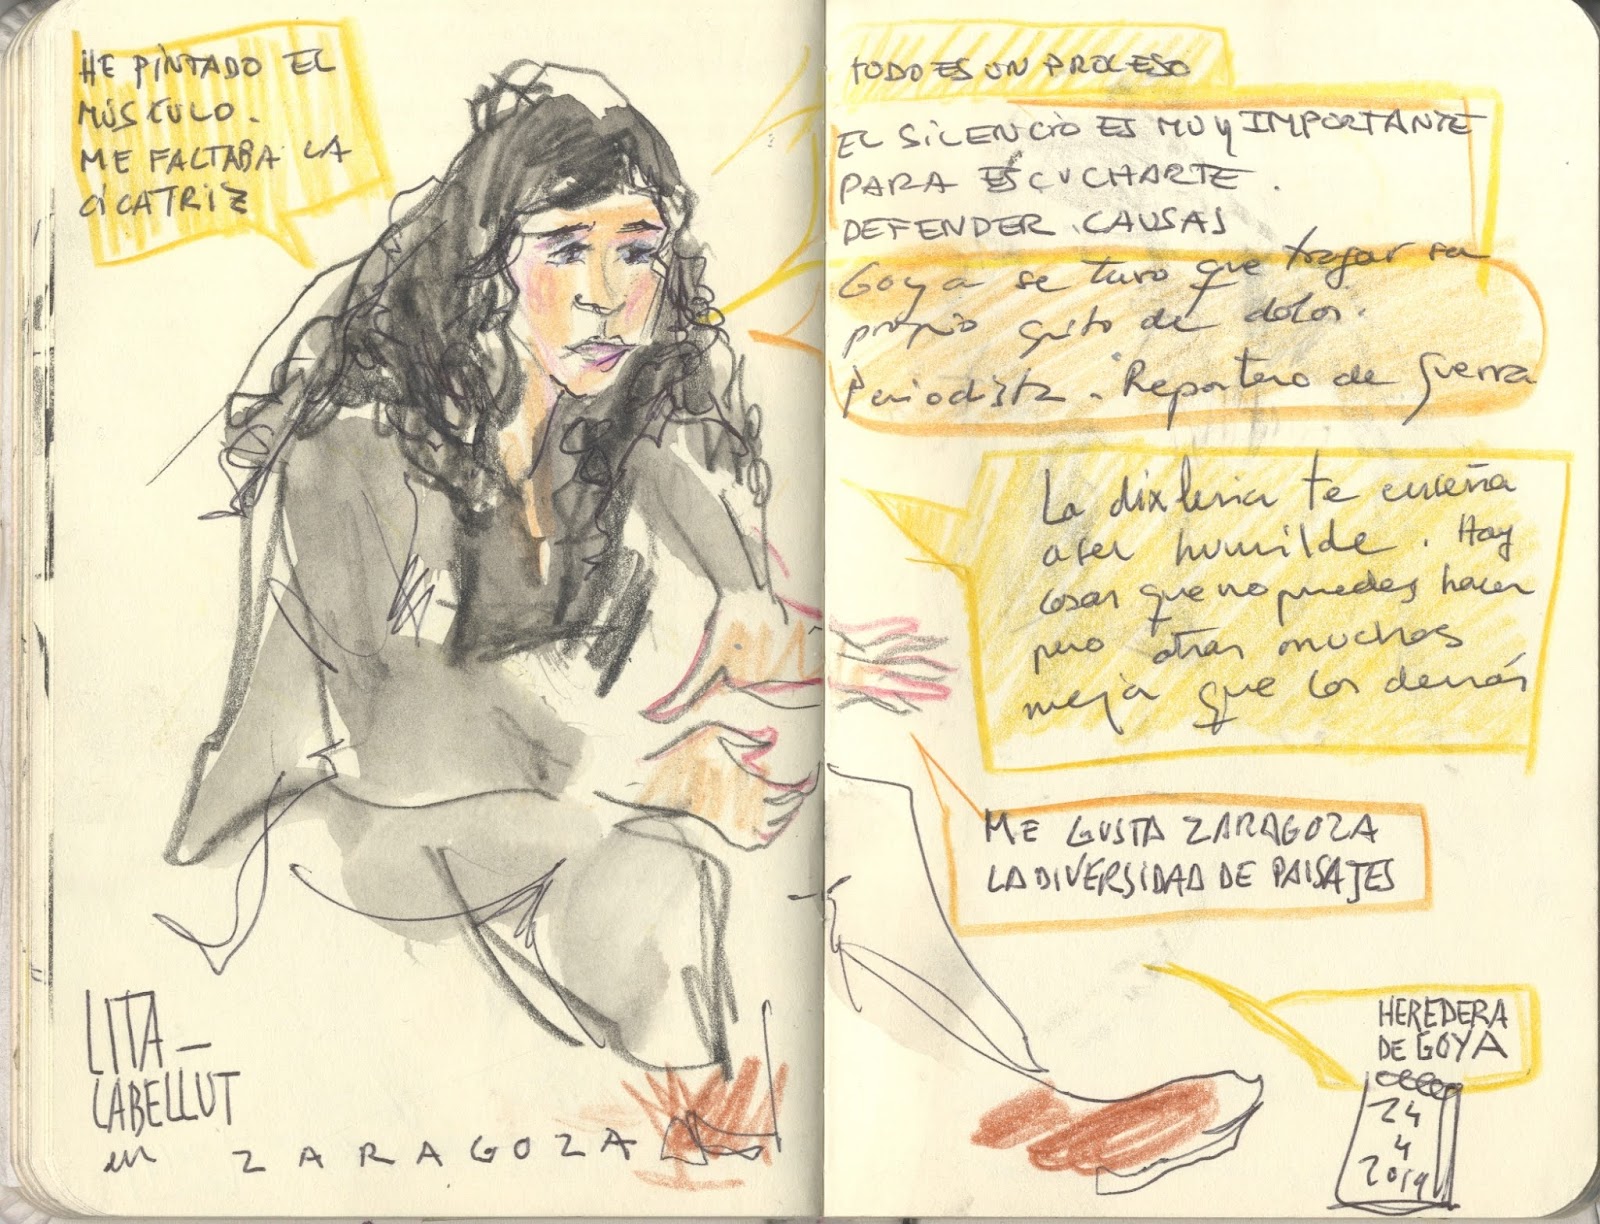 HE PINTADO EL
MÚSCULO.
ME FALTABA LA
CICATRIZ
LITA
LABELLUT
en ZARAGOZA
TODO ES UN PROCESO
EL SILENCIO ES MUY IMPORTANTE
PARA ESCUCHARTE.
DEFENDER CAUSAS
Goya se tuvo que tragar su
propio grito de dolor.
Periodista. Reportero de guerra
La dixlesia te enseña
a ser humilde. Hay
cosas que no puedes hacer
pero otras muchas
mejor que los demás
ME GUSTA ZARAGOZA
LA DIVERSIDAD DE PAISAJES
HEREDERA
DE GOYA
24
4
2019